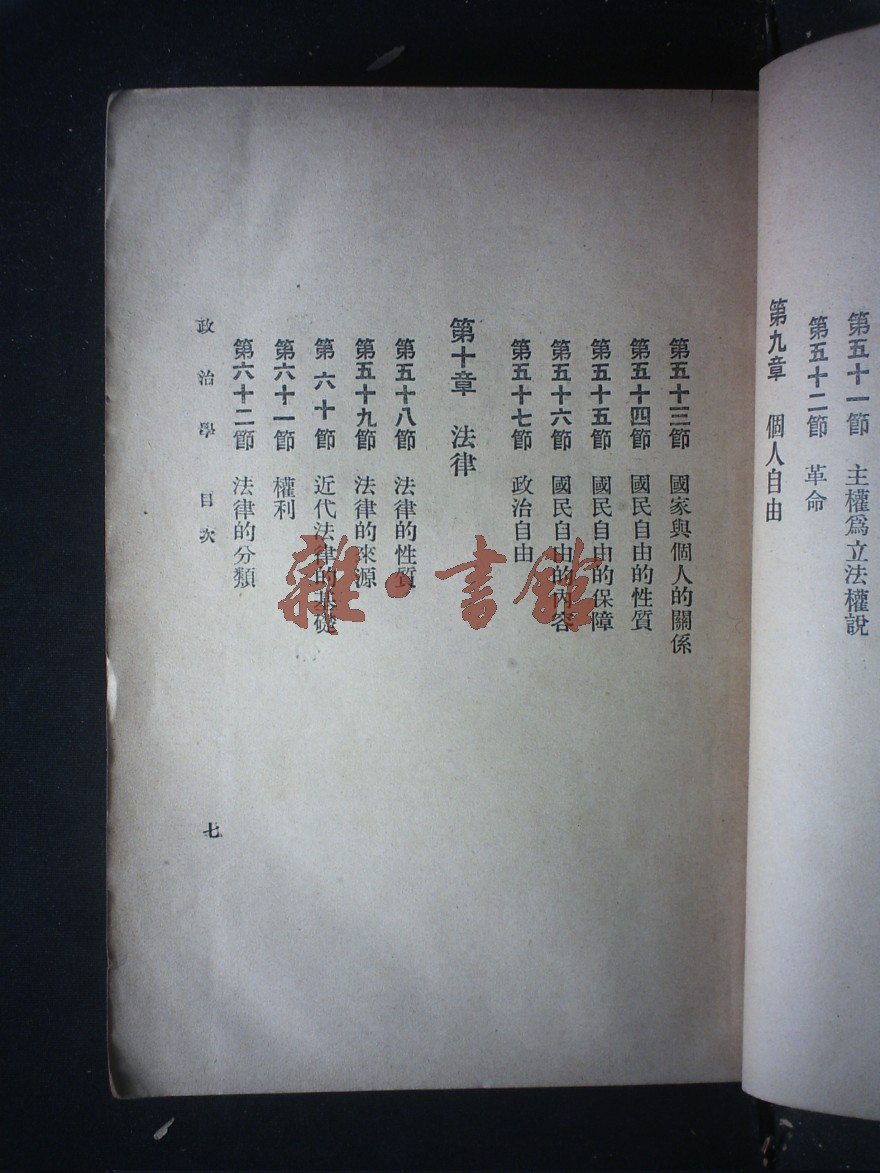 第五十一節　主權爲立法權說
第五十二節　革命
第九章　個人自由
第五十三節　國家與個人的關係
第五十四節　國民自由的性質
第五十五節　國民自由的保障
第五十六節　國民自由的內容
第五十七節　政治自由
第十章　法律
第五十八節　法律的性質
第五十九節　法律的來源
第六十節　近代法律的基礎
第六十一節　權利
第六十二節　法律的分類
政治學　目次
七
雜·書館